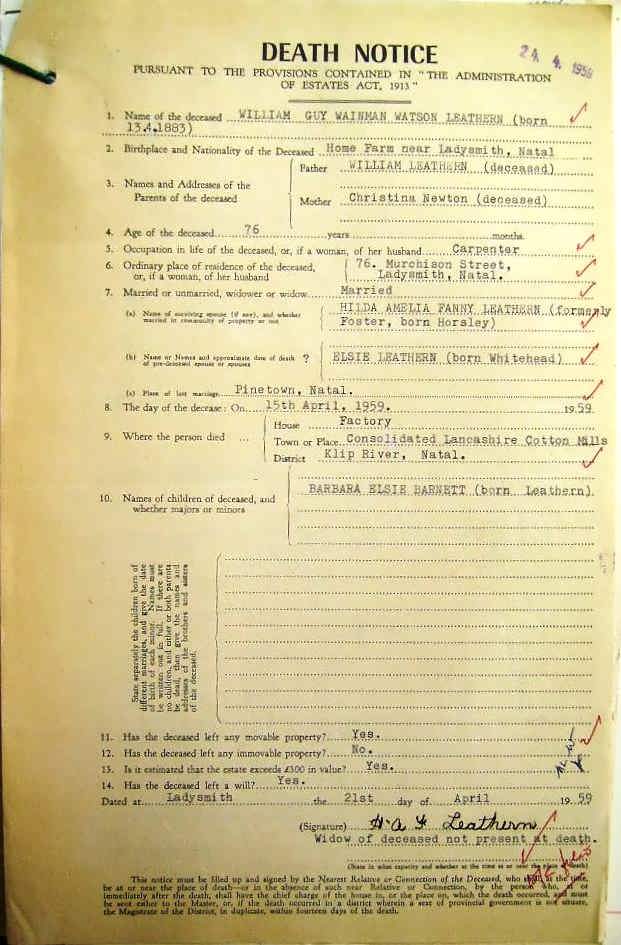 24. 4. 1959
DEATH NOTICE
PURSUANT TO THE PROVISIONS CONTAINED IN "THE ADMINISTRATION
OF ESTATES ACT, 1913"
1. Name of the deceased WILLIAM GUY WAINMAN WATSON LEATHERN (born
13.4.1883)
2. Birthplace and Nationality of the Deceased Home Farm near Ladysmith, Natal
3. Names and Addresses of the Parents of the deceased
Father WILLIAM LEATHERN (deceased)
Mother Christina Newton (deceased)
4. Age of the deceased 76 years months.
5. Occupation in life of the deceased, or, if a woman, of her husband Carpenter
6. Ordinary place of residence of the deceased, 76. Murchison Street,
or, if a woman, of her husband Ladysmith, Natal.
7. Married or unmarried, widower or widow Married
(a) Name of surviving spouse (if any), and whether HILDA AMELIA FANNY LEATHERN (formerly
married in community of property or not Foster, born Horsley)
(b) Name or Names and approximate date of death ? ELSIE LEATHERN (born Whitehead)
of pre-deceased spouse or spouses
(c) Place of last marriage Pinetown, Natal.
8. The day of the decease: On 15th April, 1959. 1959
9. Where the person died ...
House Factory
Town or Place Consolidated Lancashire Cotton Mills
District Klip River, Natal.
10. Names of children of deceased, and BARBARA ELSIE BARNETT (born Leathern)
whether majors or minors
State separately the children born of
different marriages, and give the date
of birth of each minor. Names must
be written out in full. If there are
no children, and either or both parents
be dead, then give the names and
addresses of the brothers and sisters
of the deceased.
11. Has the deceased left any movable property? Yes.
12. Has the deceased left any immovable property? No.
13. Is it estimated that the estate exceeds £300 in value? Yes.
14. Has the deceased left a will? Yes.
Dated at Ladysmith the 21st day of April 1959
(Signature) H. A. F Leathern
Widow of deceased not present at death.
(State in what capacity and whether at the time at or near the place of death)
This notice must be filled up and signed by the Nearest Relative or Connection of the Deceased, who shall at the time,
be at or near the place of death—or in the absence of such near Relative or Connection, by the person who, at or
immediately after the death, shall have the chief charge of the house in, or the place up, which the death occurred, and must
be sent either to the Master, or, if the death occurred in a district wherein a seat of provincial government is not situate,
the Magistrate of the District, in duplicate, within fourteen days of the death.